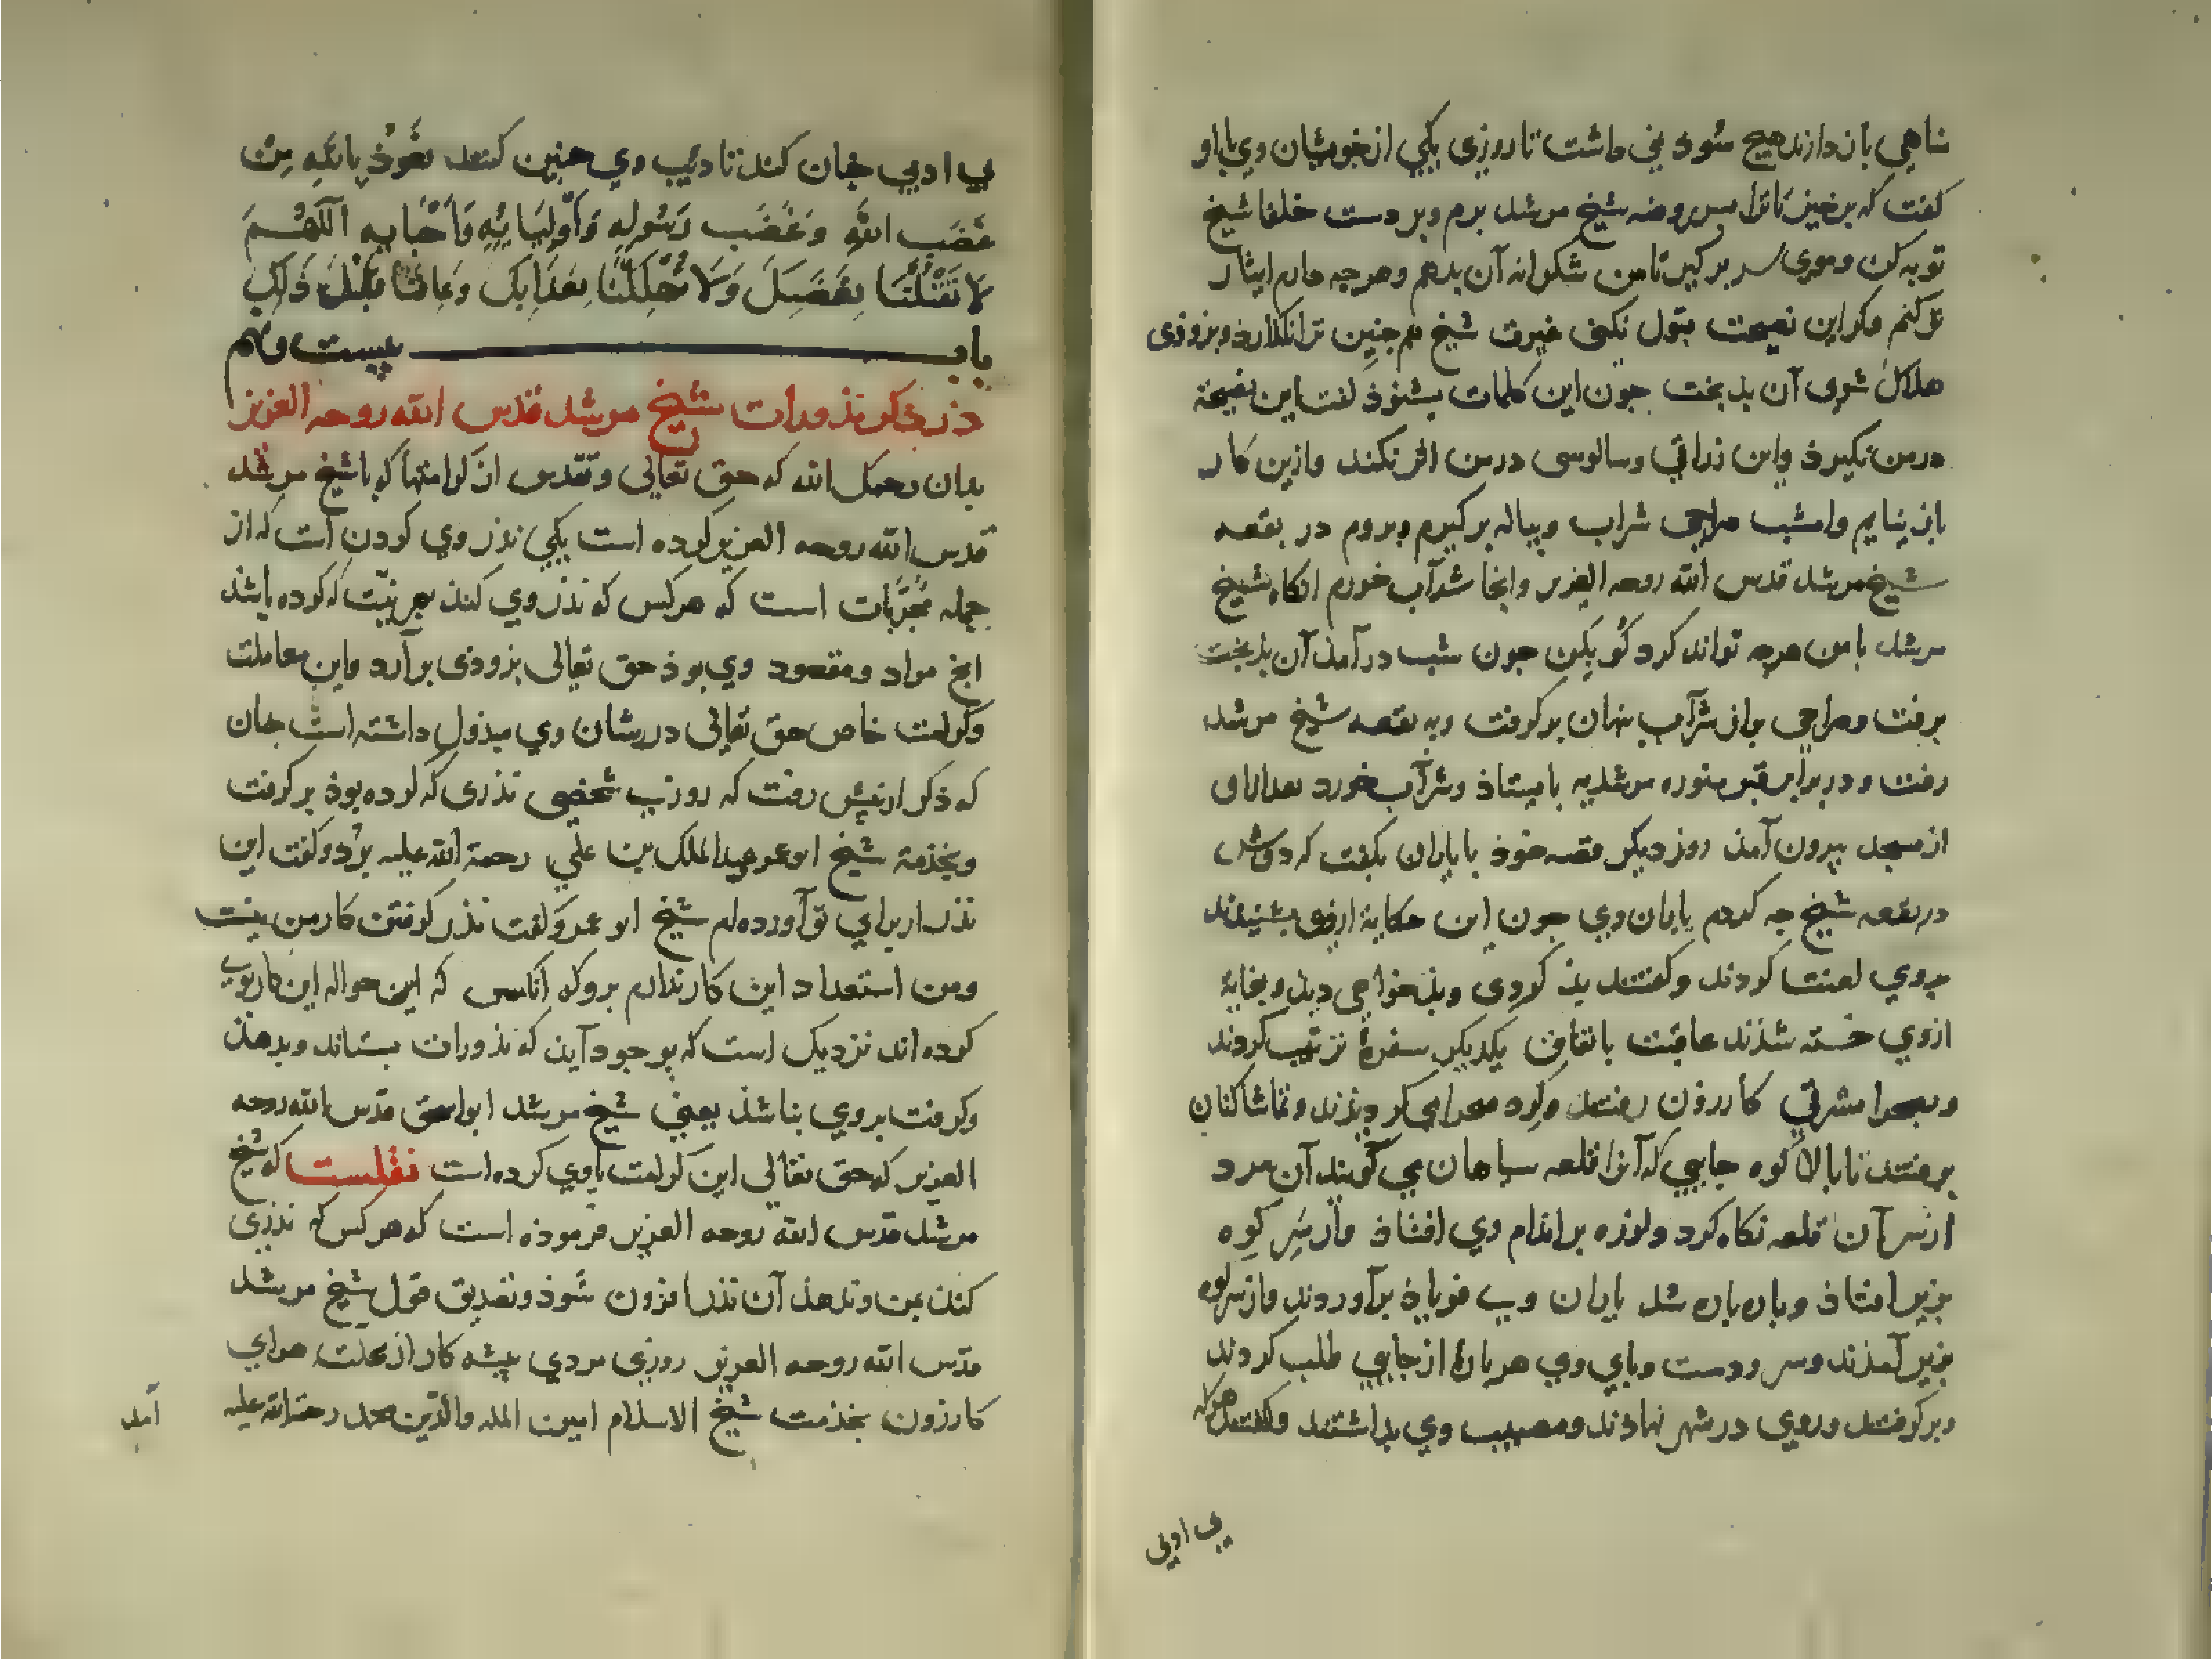 مناهی باز دارند هیچ سود نمی داشت تا روزی یکی از خویشان وی با او
کفت که برخیز تا ترا بسر روضه شیخ مرشد برم و بر دست خلفا شیخ
توبه کن و موی سر بر کیر تا من شکرانه آن بدهم و هرچه دارم ایثار
تو کنم و کر این نصیحت قبول نکنی غیرت شیخ هم جنین ترا نکذارد و بزوذی
هلاک شوی آن بذبخت جون این کلمات بشنوذ کفت این نصیحة
در من نکیرذ و این زراقی و سالوسی در من اثر نکند و ازین کار
باز نیایم و امشب صراحی شراب و پیاله بر کیرم و بروم در بقعه
شیخ مرشد قدس الله روحه العزیز و انجا شراب خورم انکاه شیخ
مرشد با من هرچه تواند کرد کو بکن جون شب در آمذ آن بذبخت
برفت و صراحی براز شرآب بنهان بر کرفت و به بقعه شیخ مرشد
رفت و در برابر قبر منوره مرشدیه بایستاذ و شرآب خورد بعد از آن
از مسجد بیرون آمذ روز دیکر قصه خوذ با یاران بکفت که دوش
در بقعه شیخ جه کردم یاران وی جون این حکایة ازوی بشنیدند
بر وی لعنت کردند و کفتند بذ کردی و بذ خواهی دید و بغایة
ازوی خسته شذند عاقبت باتفاق یکدیکر سفرهٔ ترتیب کردند
و بصحرا مشرقی کازرون رفتند و کرد صحرا می کردیذند و تماشا کنان
برفتند تا بالا کوه جایی که آنرا قلعه سباهان می کویند آن مرد
از سر آن قلعه نکاه کرد و لرزه بر اندام وی افتاذ و از سر کوه
بزیر افتاذ و باره باره شد یاران وی فریاذ برآوردند و از سر کوه
بزیر آمذند و سر و دست و بای وی هر بارهٔ از جایی طلب کردند
و بر کرفتند و روی در شهر نهاذند و مصیبت وی بداشتند و کفتند هرکه
بی ادبی
بی ادبی جنان کند تادیب وی جنین کنند نعوذ بالله من
غضب الله و غضب رسوله و اولیایه و احبابه اللهم
لا تقتلنا بغضبک ولا تهلکنا بعذابک و عافنا قبل ذلک
باب بیست و نهم
در ذکر نذورات شیخ مرشد قدس الله روحه العزیز
بدان رحمک الله که حق تعالی و تقدس از کرامتها که با شیخ مرشد
قدس الله روحه العزیز کرده است یکی نذر وی کردن است که از
جمله مجربات است که هرکس که نذر وی کند بهر نیت که کرده باشذ
انج مراد و مقصود وی بوذ حق تعالی بزوذی برآرد و این معاملت
و کرامت خاص حق تعالی در شان وی مبذول داشته است جنان
که ذکر از پیش رفت که روزی شخصی نذری که کرده بوذ بر کرفت
و بخذمة شیخ ابو عمر عبد الملک بن علی رحمة الله علیه برد و کفت این
نذر از برای تو آورده ام شیخ ابو عمرو کفت نذر کرفتن کار من نیست
و من استعداد این کار ندارم برو که آنکس که این حواله این کار بوی
کرده اند نزدیک است که بوجود آید که نذورات بستاند و بدهذ
و کرفت بروی نباشذ یعنی شیخ مرشد ابو اسحق قدس الله روحه
العزیز که حق تعالی این کرامت باوی کرده است نقلست که شیخ
مرشد قدس الله روحه العزیز فرموذه است که هرکس که نذری
کند بمن و بدهذ آن نذر افزون شوذ و تصدیق قول شیخ مرشد
قدس الله روحه العزیز روزی مردی بیشه کار از محلت صرای
کازرون بخذمت شیخ الاسلام امین المله والدین محمد رحمة الله علیه
آمد